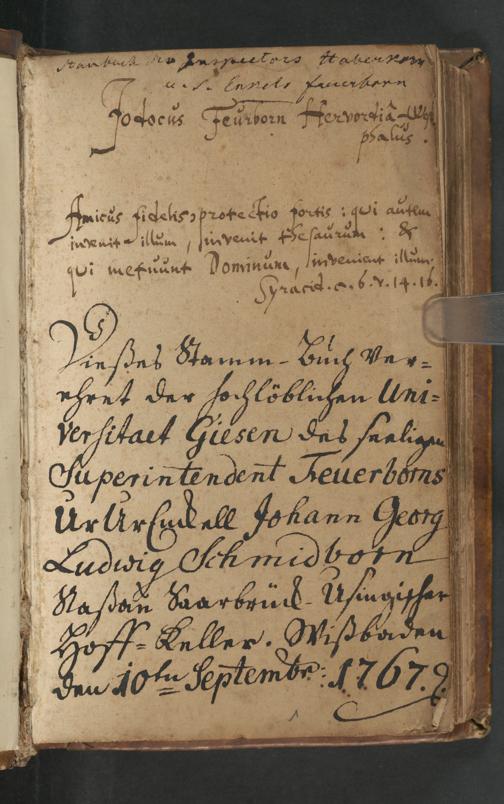 Stambuch des Inspectors Haberkorn
u. s. Enkels Feuerborn
Jodocus Feurborn Hervordiâ-West
phalus.
Amicus fidelis, protectio fortis: qui autem
invenit illum, invenit thesaurum: &
qui metuunt Dominum, invenient illum.
Syracid. c. 6. v. 14. 16.
Dießes Stamm-Buch Ver=
ehret der hochlöblichen Uni=
versitaet Giesen des seeligen
Superintendent Feuerborns
UrUrEnckell Johann Georg
Ludwig Schmidborn
Naßau Saarbrück-Usingischer
Hoff-Keller. Wißbaden
den 10tn Septembr: 1767.